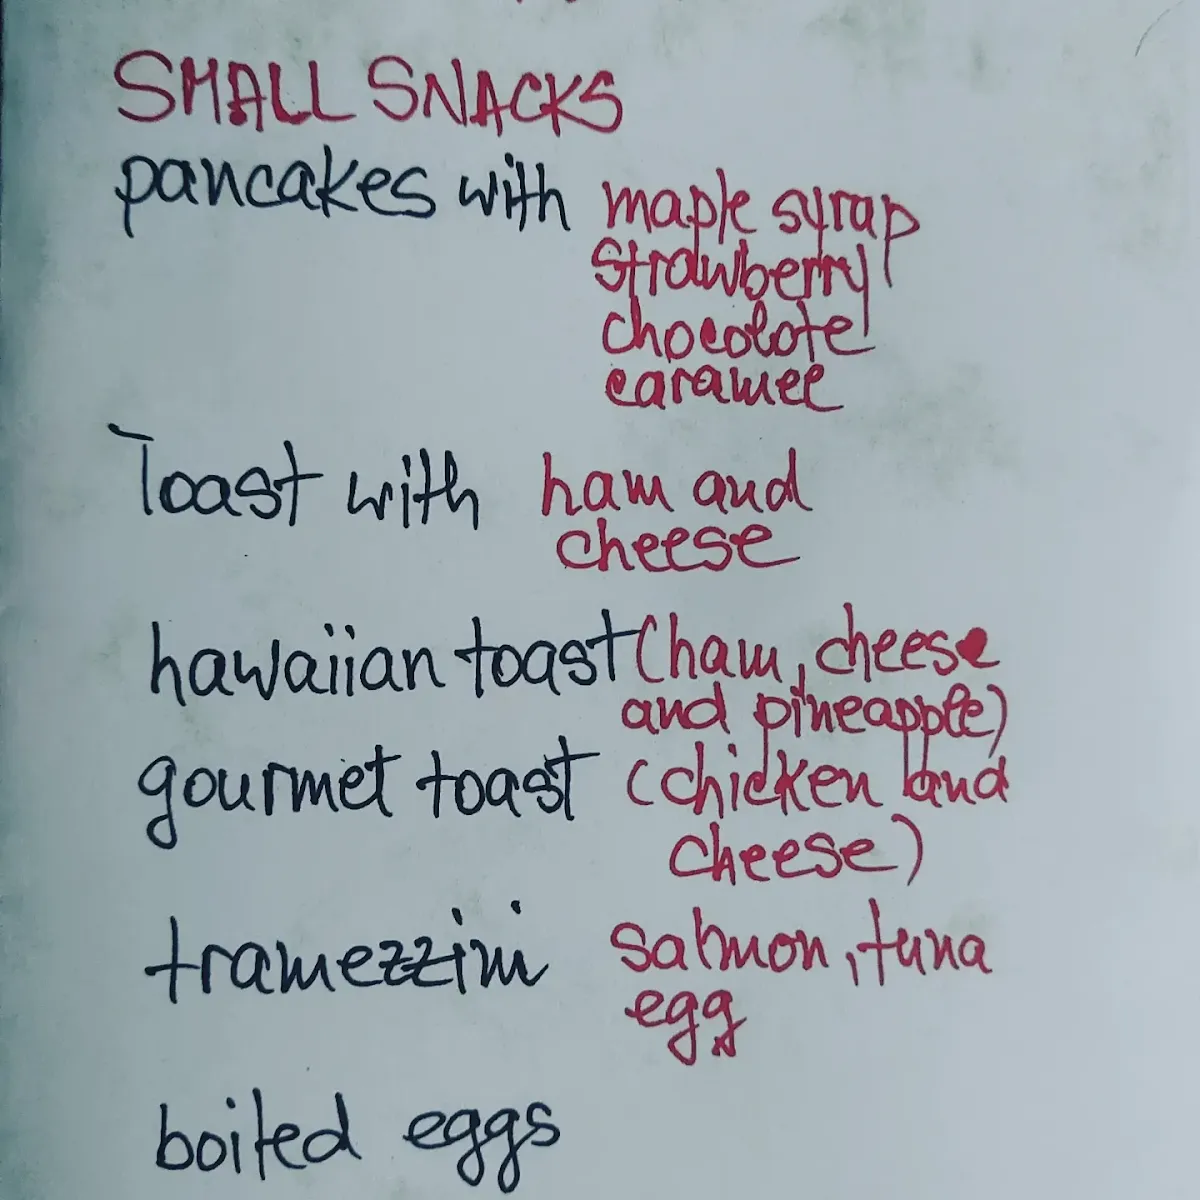 SMALL SNACKS
pancakes with maple syrap
strawberry
chocolote
caramel
Toast with ham and
cheese
hawaiian toast (ham, cheese
and pineapple)
gourmet toast (chicken and
cheese)
tramezzini salmon, tuna
egg
boiled eggs